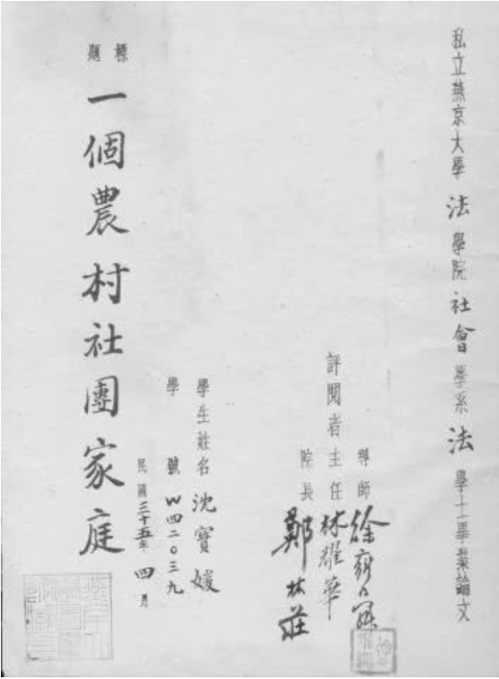 私立燕京大學法學院社會學系法學士畢業論文
導師徐雍舜
評閱者主任林耀華
院長鄭林莊
學生姓名沈寶媛
學號W四二〇三九
民國三十五年四月
標題一個農村社團家庭